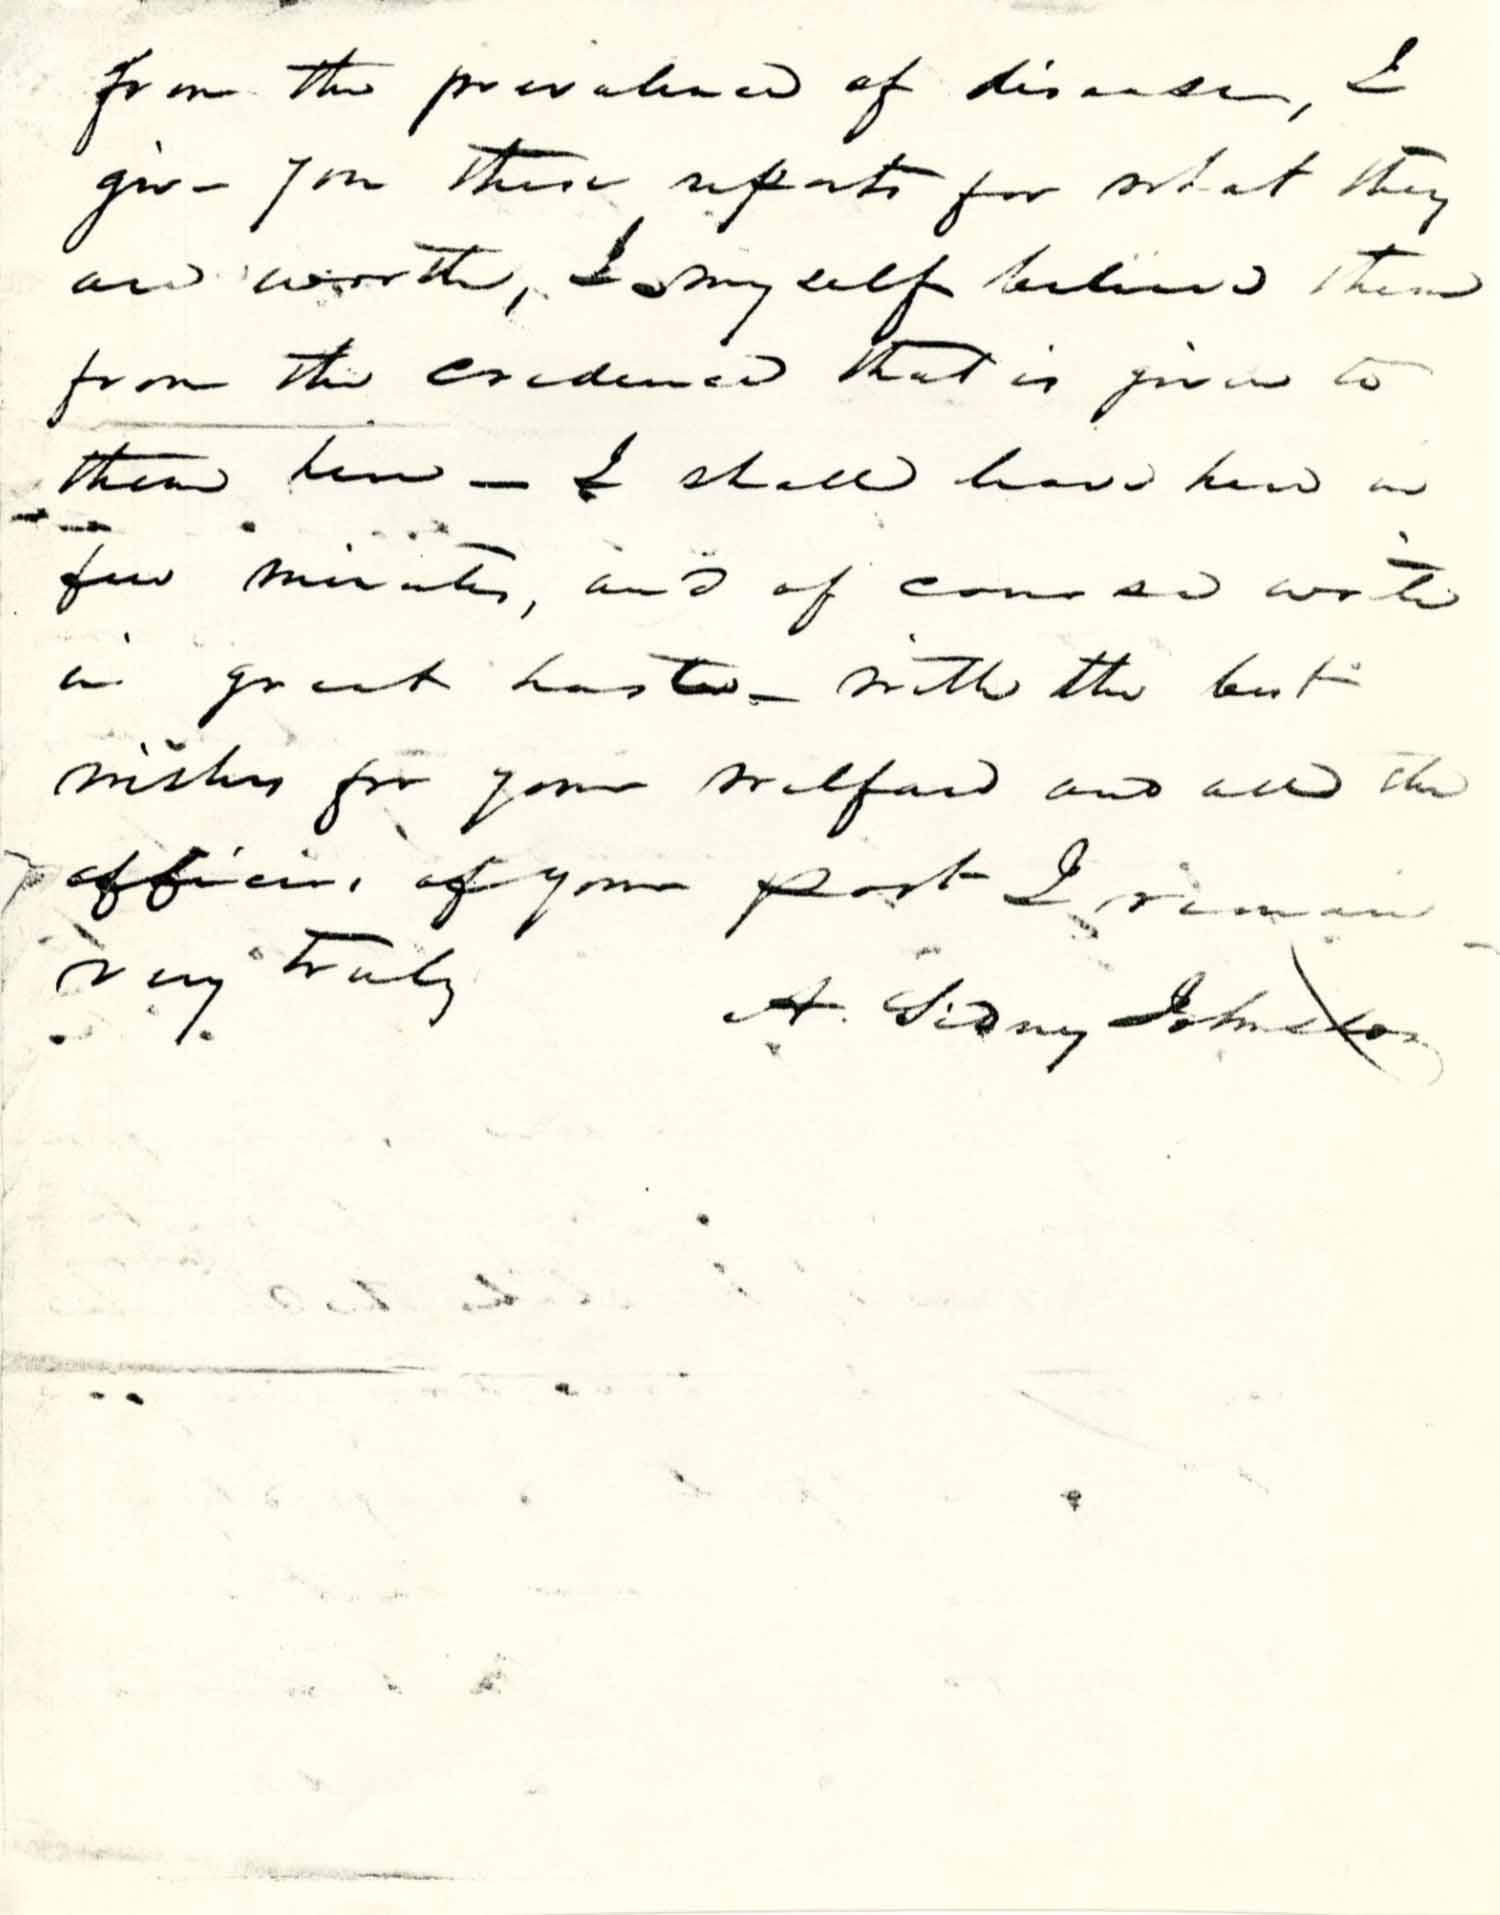 from the prevalence of disease, I
give you these reports for what they
are worth, I myself believe them
from the credence that is given to
them here — I shall leave here in
few minutes, and of course write
in great haste — with the best
wishes for your welfare and all the
officers of your post I remain
very truly
A. Sidney Johnston